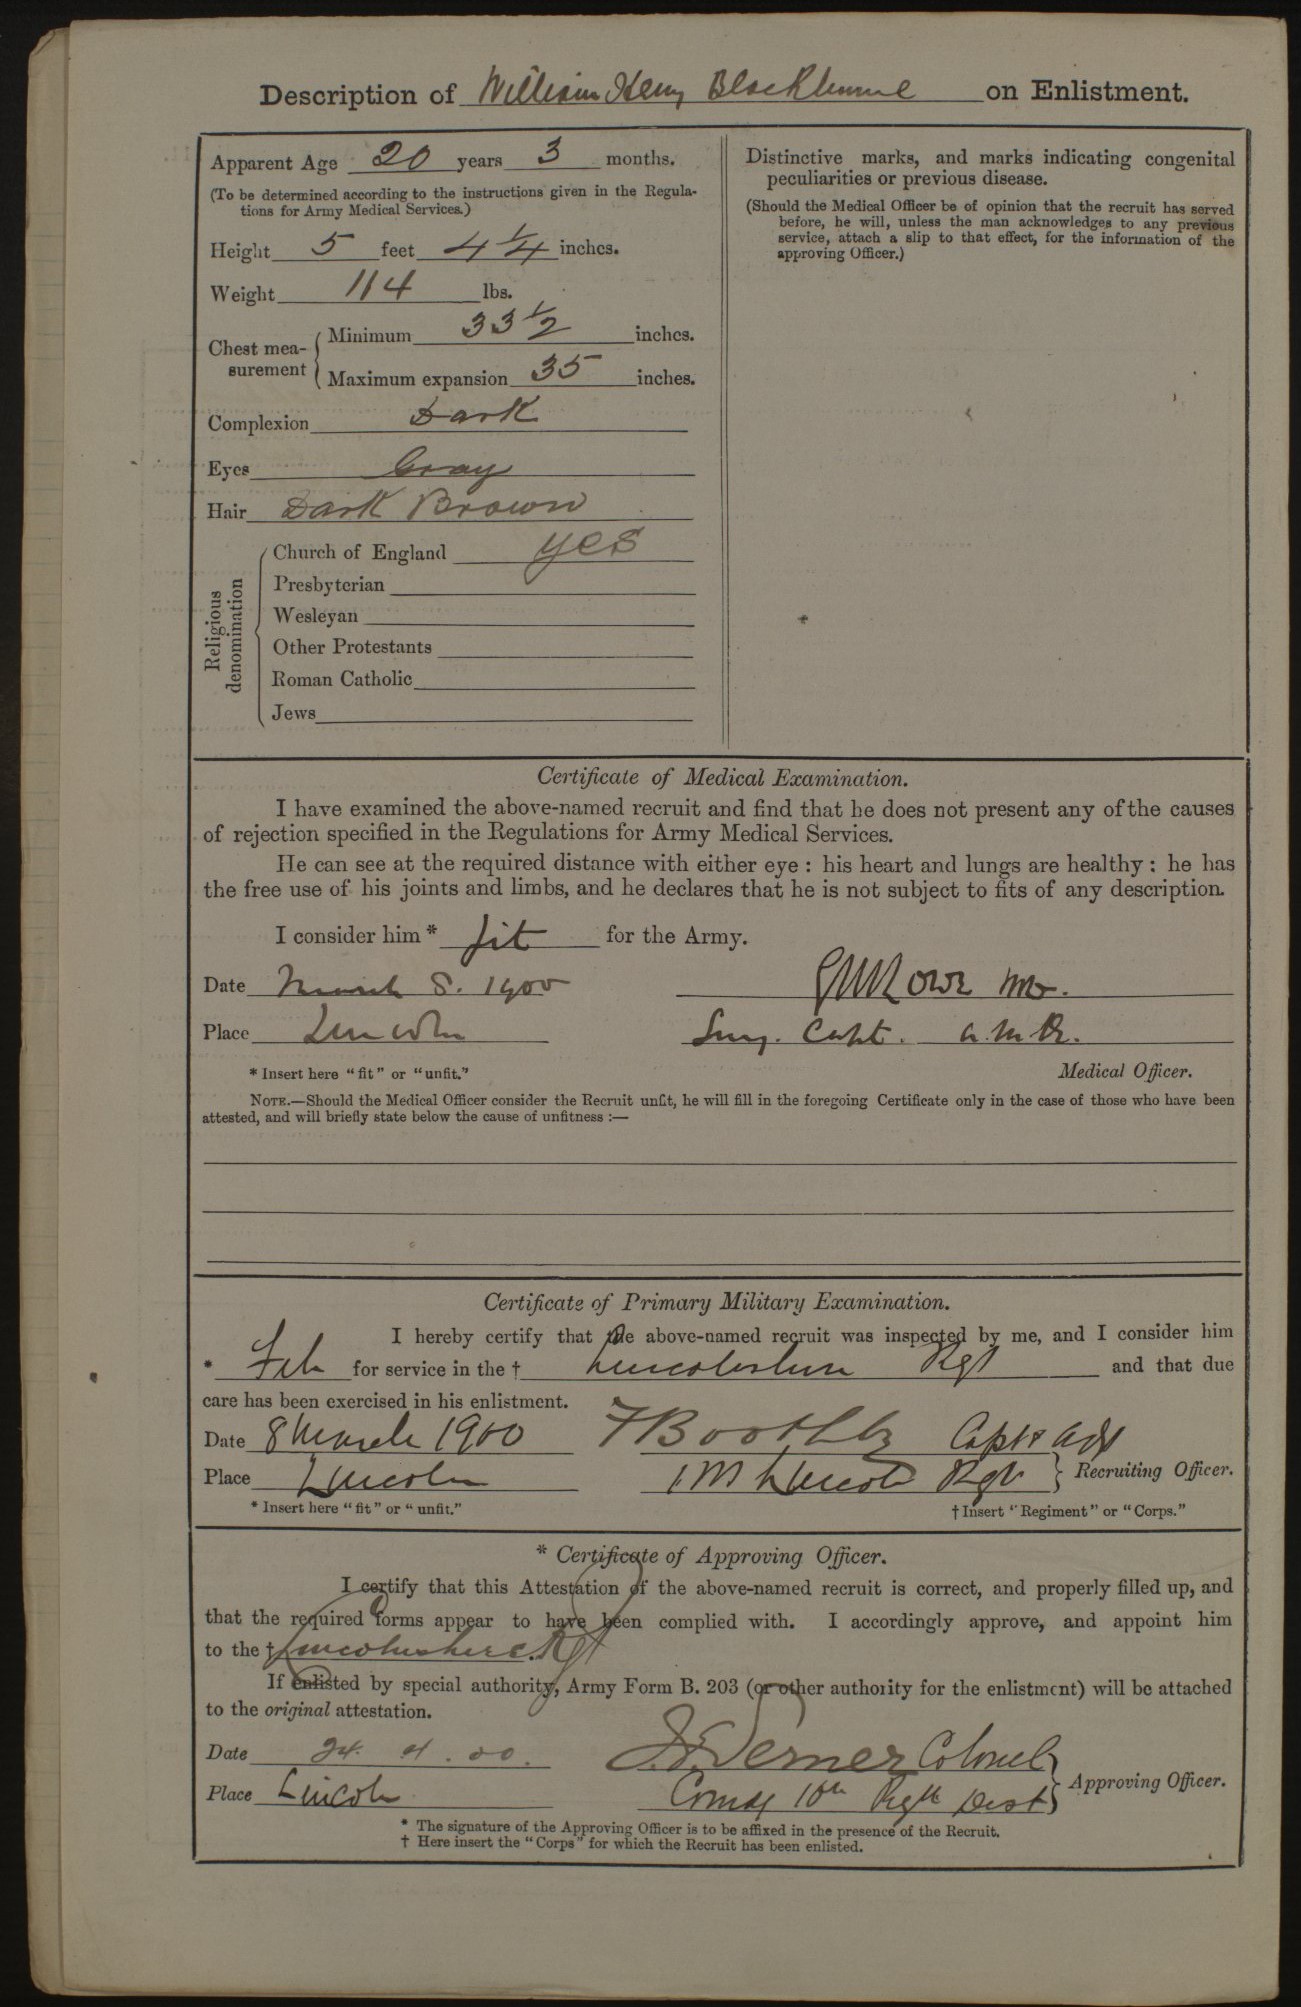 Description of William Henry Blackbourne on Enlistment.
Apparent Age 20 years 3 months.
(To be determined according to the instructions given in the Regula-
tions for Army Medical Services.)
Height 5 feet 4 1/4 inches.
Weight 114 lbs.
Chest mea-
surement
Minimum 33 1/2 inches.
Maximum expansion 35 inches.
Complexion Dark
Eyes Gray
Hair Dark Brown
Religious
denomination
Church of England yes
Presbyterian
Wesleyan
Other Protestants
Roman Catholic
Jews
Distinctive marks, and marks indicating congenital
peculiarities or previous disease.
(Should the Medical Officer be of opinion that the recruit has served
before, he will, unless the man acknowledges to any previous
service, attach a slip to that effect, for the information of the
approving Officer.)
Certificate of Medical Examination.
I have examined the above-named recruit and find that he does not present any of the causes
of rejection specified in the Regulations for Army Medical Services.
He can see at the required distance with either eye : his heart and lungs are healthy : he has
the free use of his joints and limbs, and he declares that he is not subject to fits of any description.
I consider him * fit for the Army.
Date March 8. 1900
Place Lincoln
Lowe
Surg. Capt.
* Insert here "fit" or "unfit."
Medical Officer.
NOTE.—Should the Medical Officer consider the Recruit unfit, he will fill in the foregoing Certificate only in the case of those who have been
attested, and will briefly state below the cause of unfitness :—
Certificate of Primary Military Examination.
I hereby certify that the above-named recruit was inspected by me, and I consider him
* Fit for service in the † Lincolnshire Rgt and that due
care has been exercised in his enlistment.
Date 8 March 1900 F Boothby Capt & Adjt
Place Lincoln Lincoln Rgt } Recruiting Officer.
* Insert here "fit" or "unfit."
† Insert "Regiment" or "Corps."
* Certificate of Approving Officer.
I certify that this Attestation of the above-named recruit is correct, and properly filled up, and
that the required forms appear to have been complied with. I accordingly approve, and appoint him
to the † Lincolnshire Rgt
If enlisted by special authority, Army Form B. 203 (or other authority for the enlistment) will be attached
to the original attestation.
Date 24. 4. 00. Verner Colonel
Place Lincoln Comdg 10th Regtl Dist } Approving Officer.
* The signature of the Approving Officer is to be affixed in the presence of the Recruit.
† Here insert the "Corps" for which the Recruit has been enlisted.